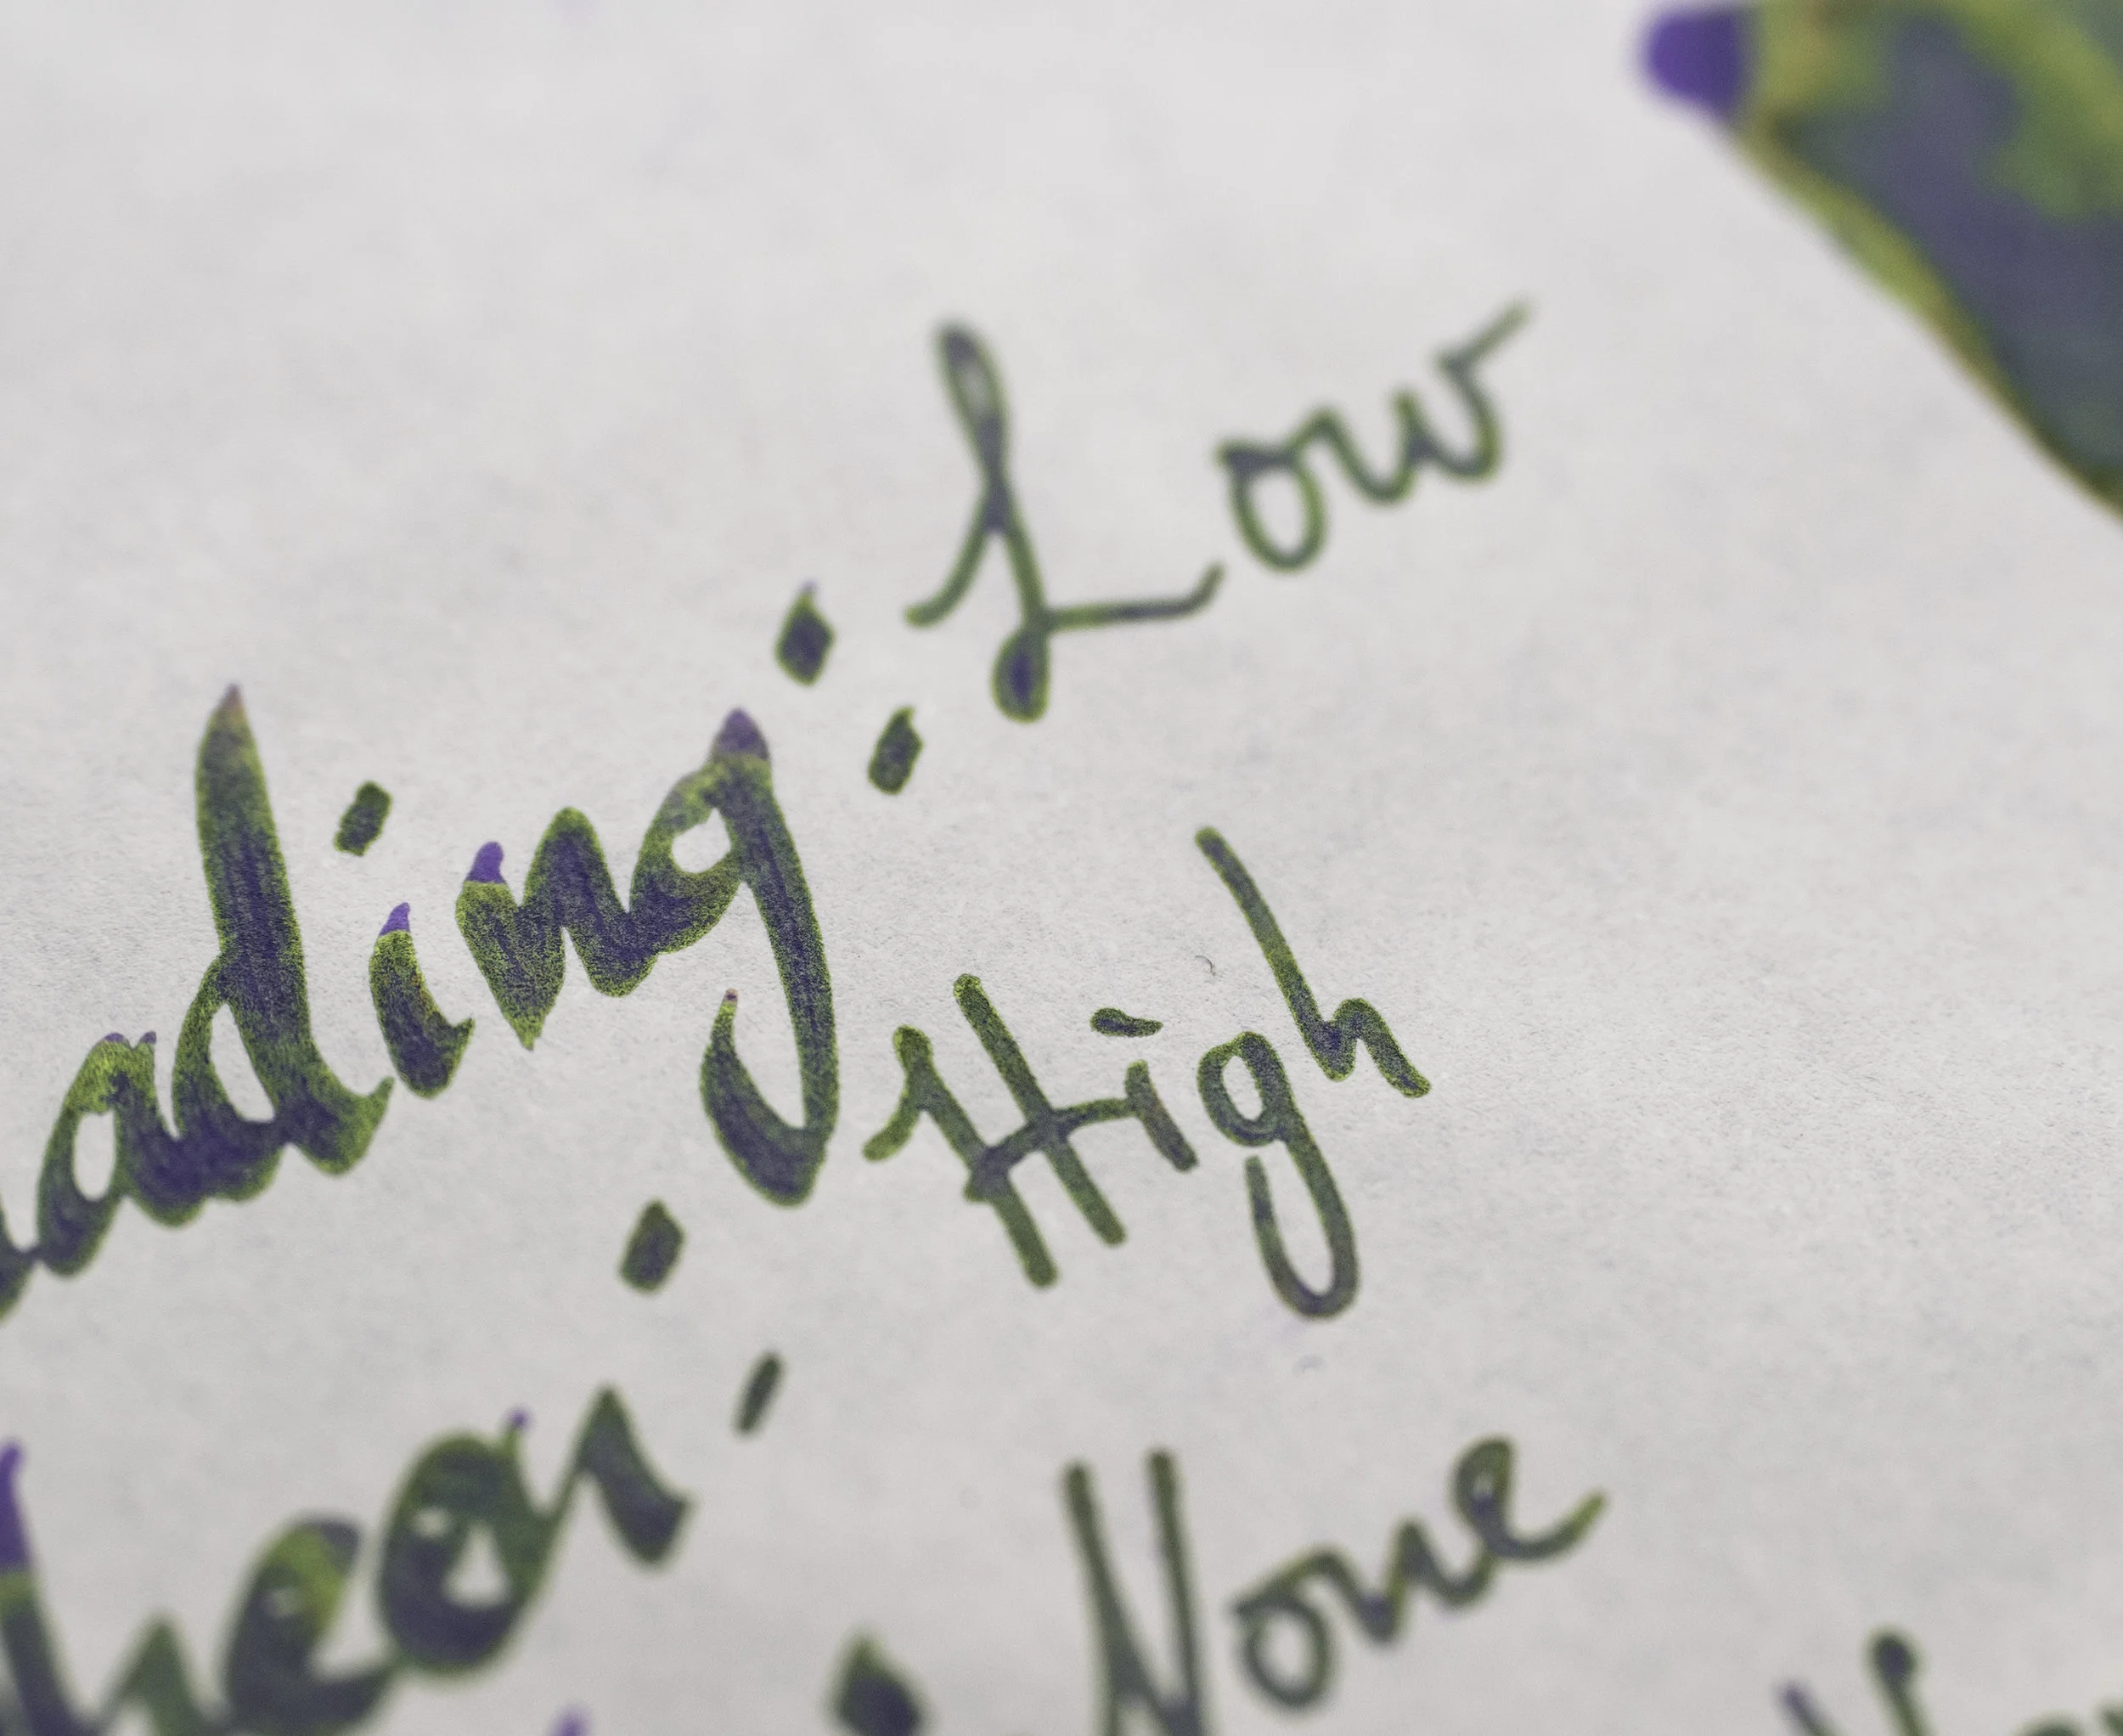 ading: Low
heen: High
: None